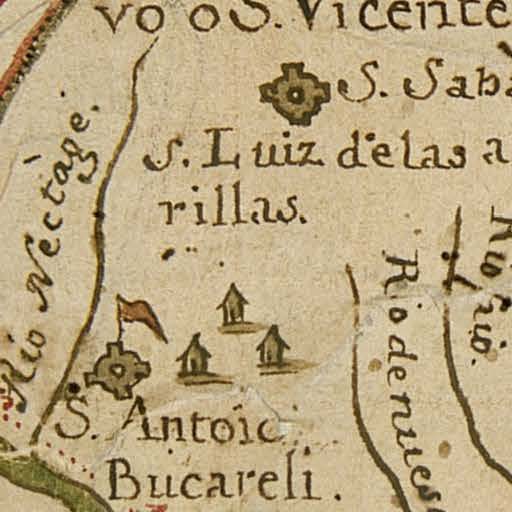 vo o S. Vicente
S. Sabà
S. Luiz de las a
rillas.
Rio Nèctage.
Rio
Rio de nues
S. Antoîo
Bucareli.